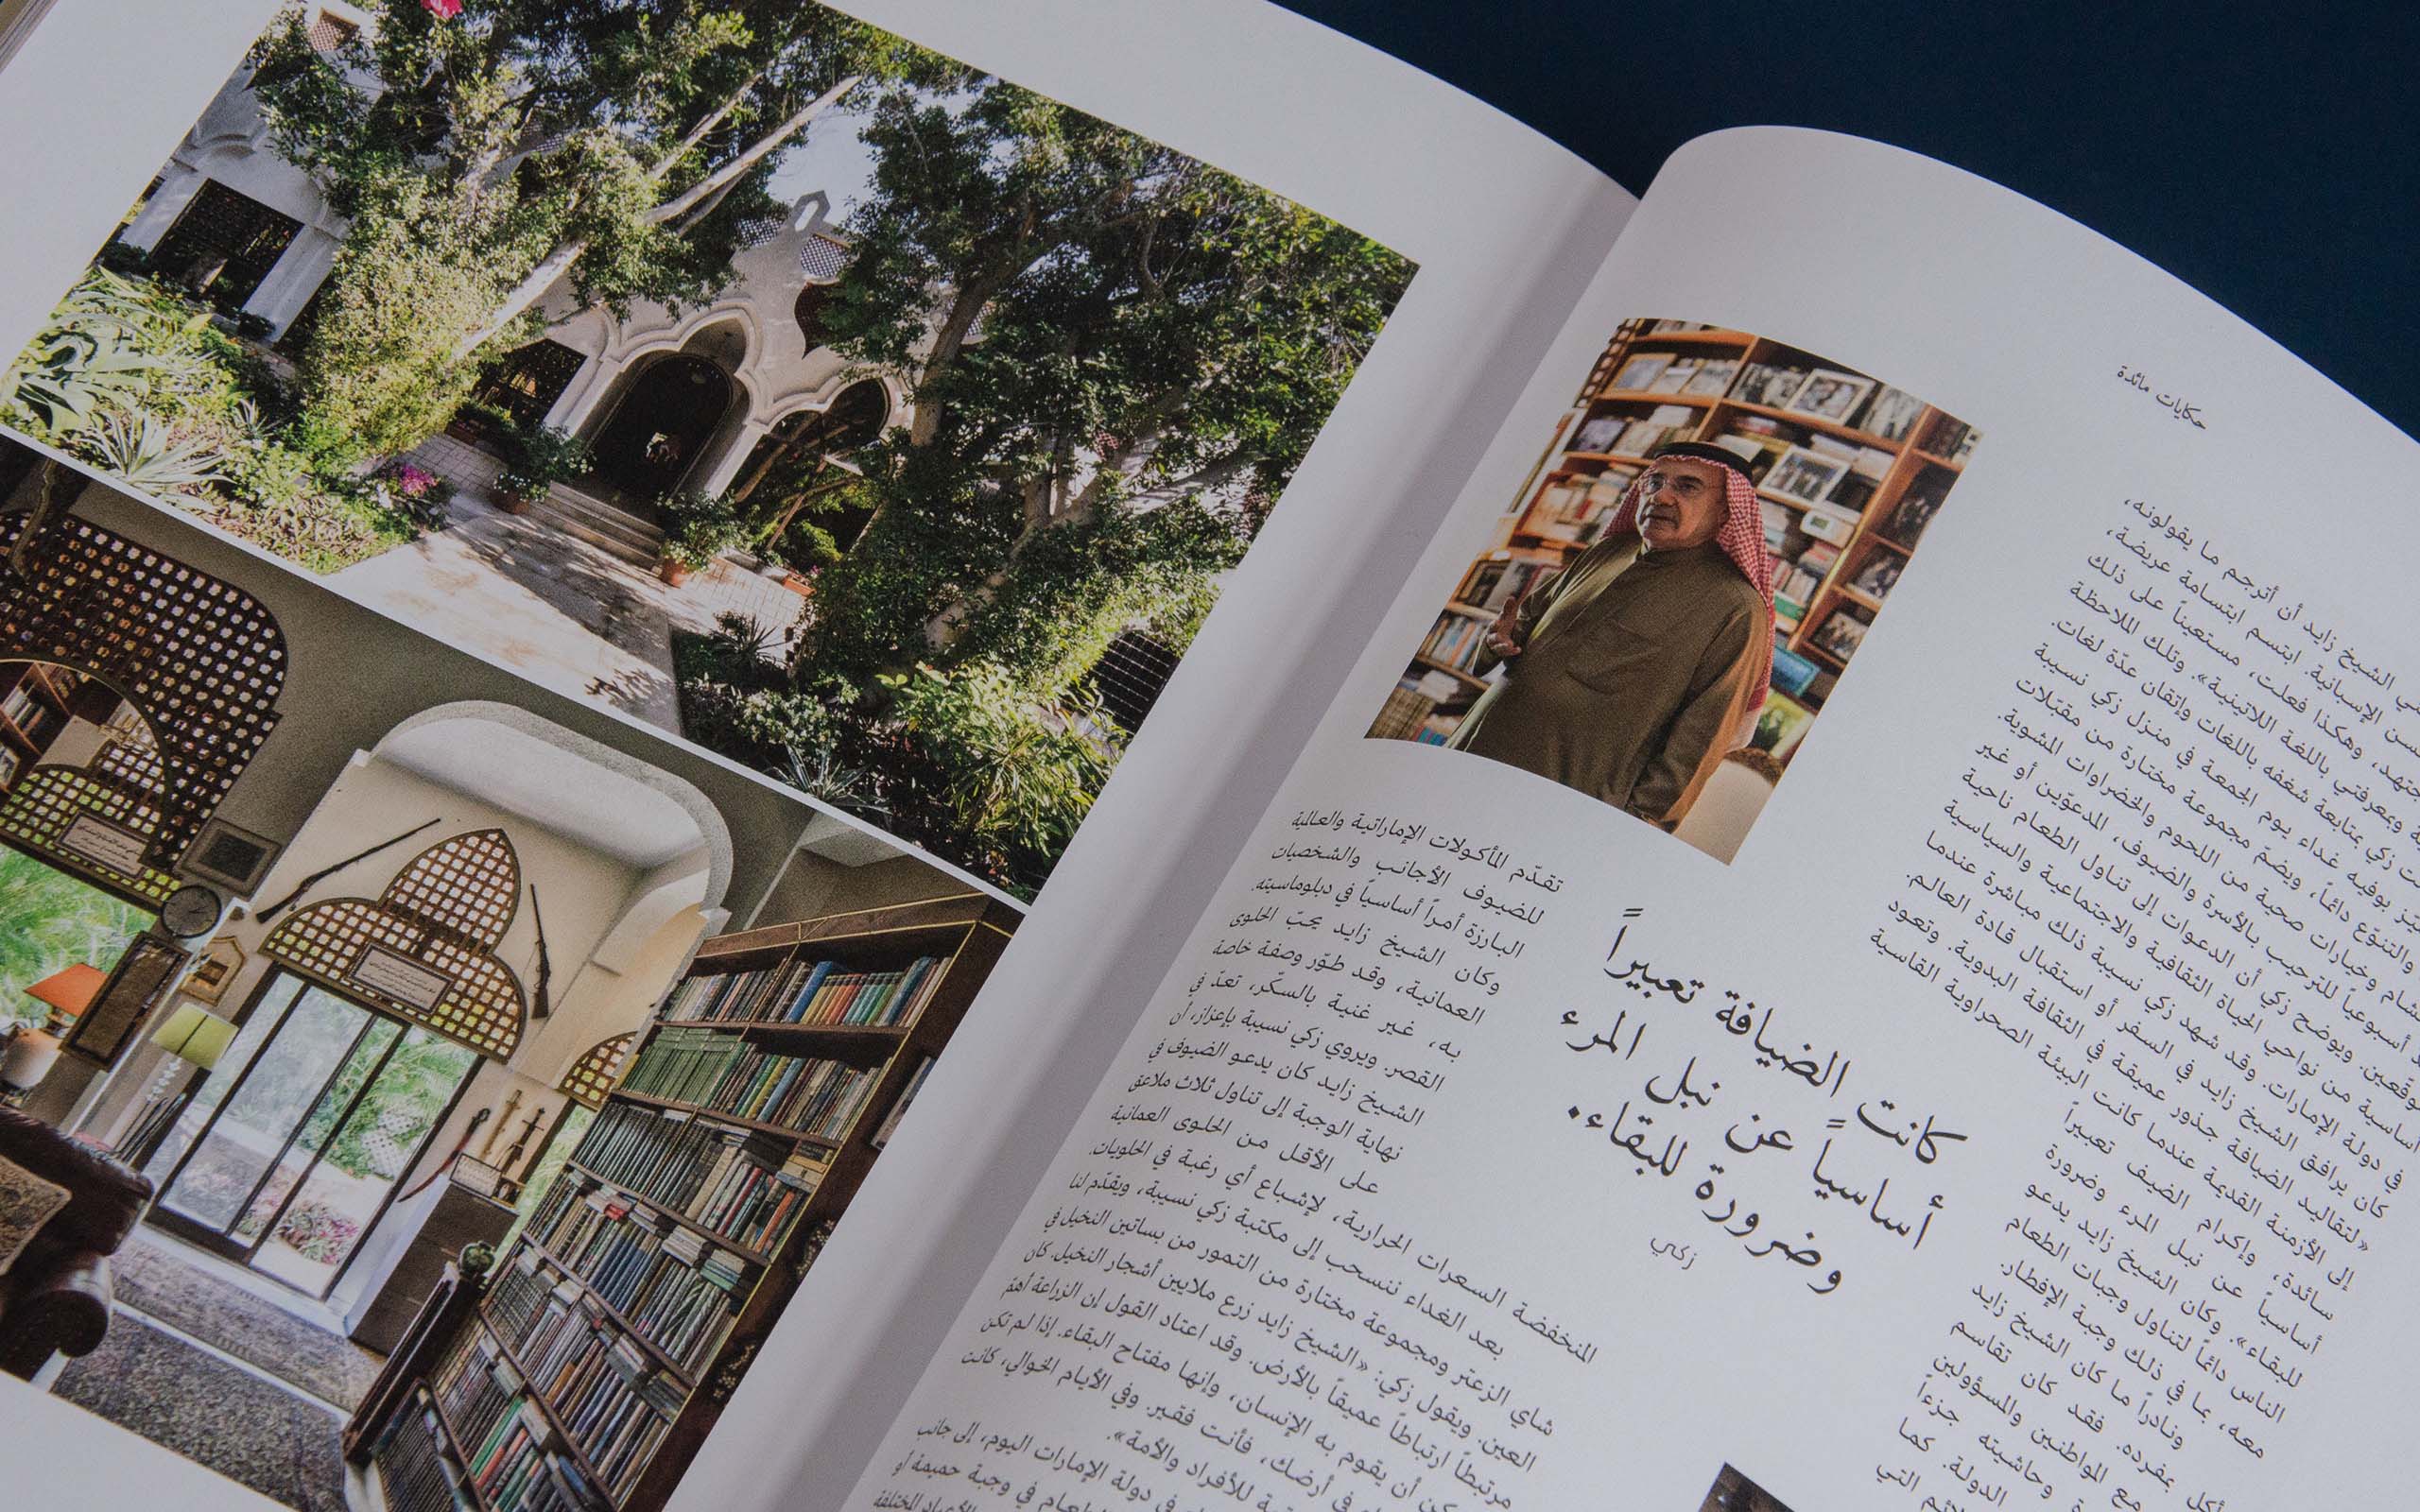 حكايات مائدة
الشيخ زايد أن أترجم ما يقولونه،
الإسبانية. ابتسم ابتسامة عريضة،
وهكذا فعلت، مستعيناً على ذلك
وبمعرفتي باللغة اللاتينية». وتلك الملاحظة
زكي بمتابعة شغفه باللغات وإتقان عدّة لغات.
بوفيه غداء يوم الجمعة في منزل زكي نسيبة
والتنوّع دائماً، ويضمّ مجموعة مختارة من مقبّلات
وخيارات صحية من اللحوم والخضراوات المشوية.
أسبوعياً للترحيب بالأسرة والضيوف، المدعوّين أو غير
ويوضح زكي أن الدعوات إلى تناول الطعام ناحية
أساسية من نواحي الحياة الثقافية والاجتماعية والسياسية
في دولة الإمارات. وقد شهد زكي نسيبة ذلك مباشرة عندما
كان يرافق الشيخ زايد في السفر أو استقبال قادة العالم.
«لتقاليد الضيافة جذور عميقة في الثقافة البدوية. وتعود
إلى الأزمنة القديمة عندما كانت البيئة الصحراوية القاسية
سائدة، وإكرام الضيف تعبيراً
أساسياً عن نبل المرء وضرورة
للبقاء». وكان الشيخ زايد يدعو
الناس دائماً لتناول وجبات الطعام
معه، بما في ذلك وجبة الإفطار.
ونادراً ما كان الشيخ زايد
بمفرده. فقد كان تقاسم
مع المواطنين والمسؤولين
وحاشيته جزءاً
الدولة. كما
التي
كانت الضيافة تعبيراً
أساسياً عن نبل المرء
وضرورة للبقاء.
زكي
تقدّم المأكولات الإماراتية والعالمية
للضيوف الأجانب والشخصيات
البارزة أمراً أساسياً في دبلوماسيته.
وكان الشيخ زايد يحبّ الحلوى
العمانية، وقد طوّر وصفة خاصة
به، غير غنية بالسكّر، تعدّ في
القصر. ويروي زكي نسيبة بإعزاز، أن
الشيخ زايد كان يدعو الضيوف في
نهاية الوجبة إلى تناول ثلاث ملاعق
على الأقل من الحلوى العمانية
المنخفضة السعرات الحرارية، لإشباع أي رغبة في الحلويات.
بعد الغداء ننسحب إلى مكتبة زكي نسيبة، ويقدّم لنا
شاي الزعتر ومجموعة مختارة من التمور من بساتين النخيل في
العين. ويقول زكي: «الشيخ زايد زرع ملايين أشجار النخيل. كان
مرتبطاً ارتباطاً عميقاً بالأرض. وقد اعتاد القول إن الزراعة أهمّ
أن يقوم به الإنسان، وإنها مفتاح البقاء. إذا لم تكن
في أرضك، فأنت فقير. وفي الأيام الخوالي، كانت
للأفراد والأمة».
في دولة الإمارات اليوم، إلى جانب
الطعام في وجبة حميمة أو
المختلفة